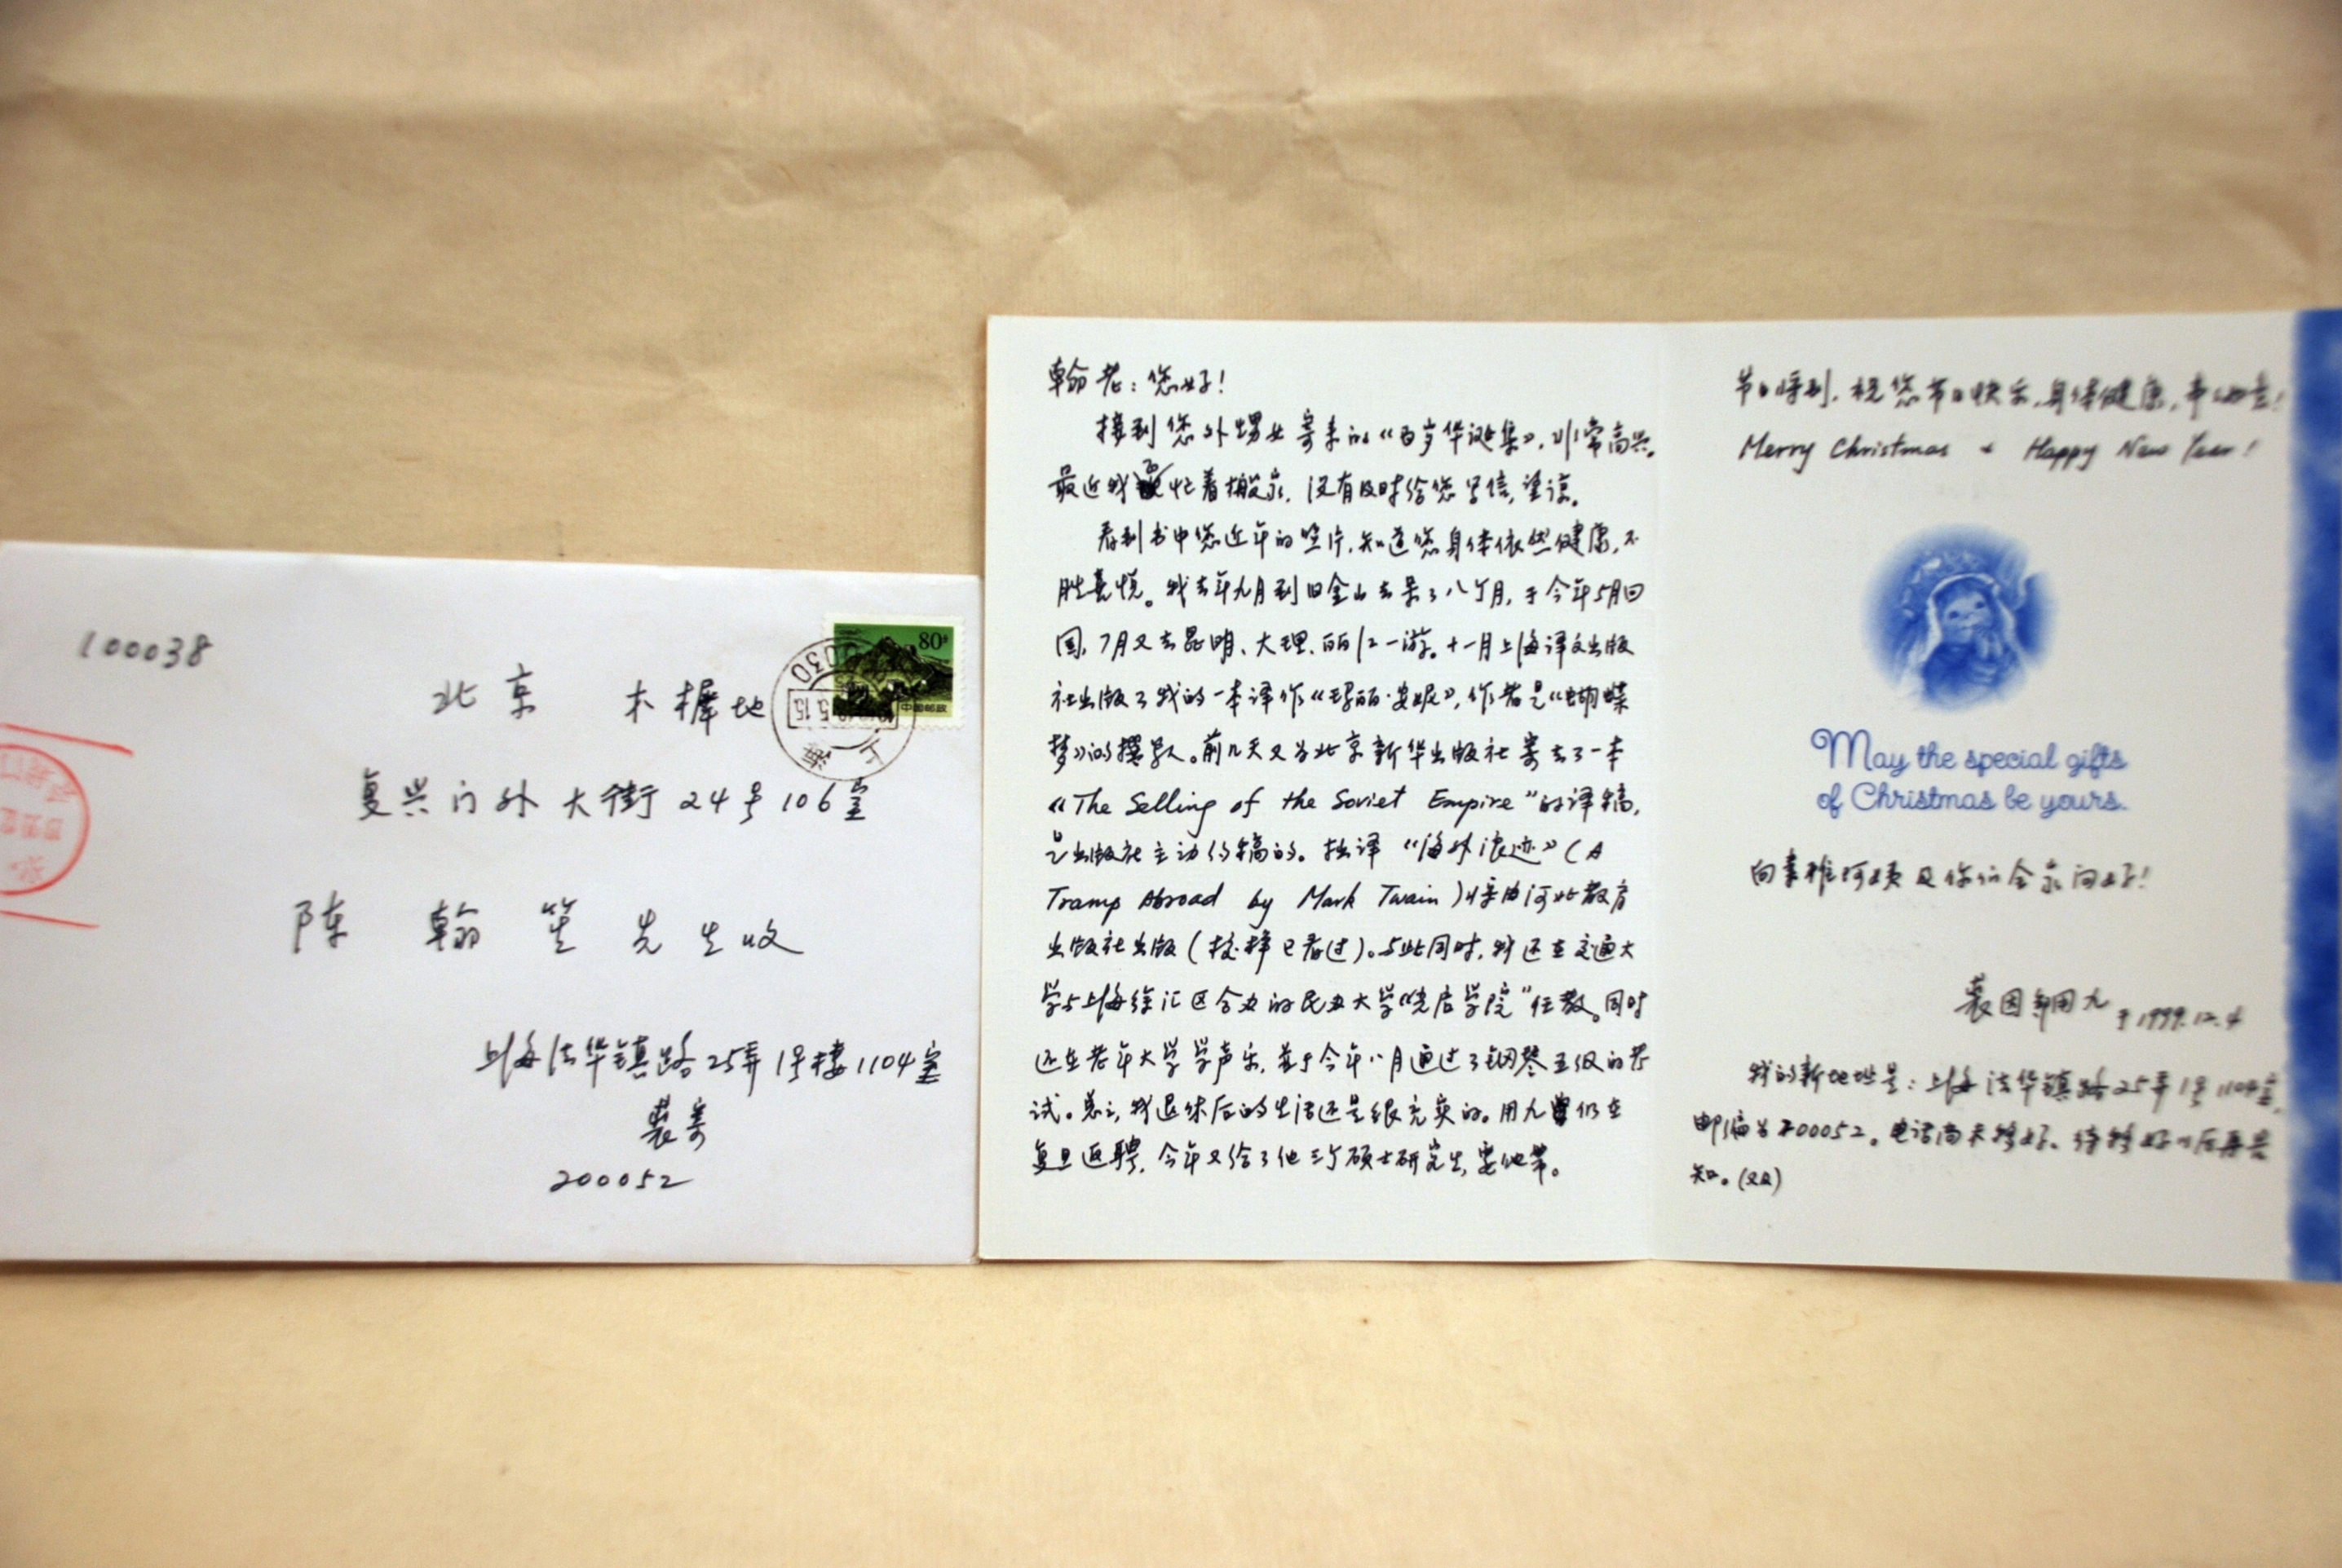 100038
北京 木樨地
复兴门外大街24号106室
陈翰笙先生收
上海法华镇路25弄1号楼1104室
裘寄
200052
80分
中国邮政
上海
翰老：您好！
接到您外甥女寄来的《百岁华诞集》，非常高兴。
最近我忙着搬家，没有及时给您写信，望谅。
看到书中您近年的照片，知道您身体依然健康，不
胜喜悦。我去年九月到旧金山去呆了八个月，于今年5月回
国，7月又去昆明、大理、丽江一游。十一月上海译文出版
社出版了我的一本译作《玛丽·安妮》，作者是《蝴蝶
梦》的撰写人。前几天又为北京新华出版社寄去了一本
《The Selling of the Soviet Empire》的译稿，
是出版社主动约稿的。拙译《海外浪迹》(A
Tramp Abroad by Mark Twain)将由河北教育
出版社出版(校样已看过)。与此同时，我还在交通大
学与上海徐汇区合办的民办大学“光启学院”任教。同时
还在老年大学学声乐，并于今年八月通过了钢琴五级的考
试。总之，我退休后的生活还是很充实的。用九仍在
复旦返聘，今年又给了他三个硕士研究生，要他带。
节日将到，祝您节日快乐，身体健康，事如意！
Merry Christmas + Happy New Year!
May the special gifts
of Christmas be yours.
向素雅阿姨及你们全家问好！
裘因 用九 于1999.12.4
我的新地址是：上海法华镇路25弄1号1104室，
邮编为200052。电话尚未移好，待移好以后再告
知。(又及)